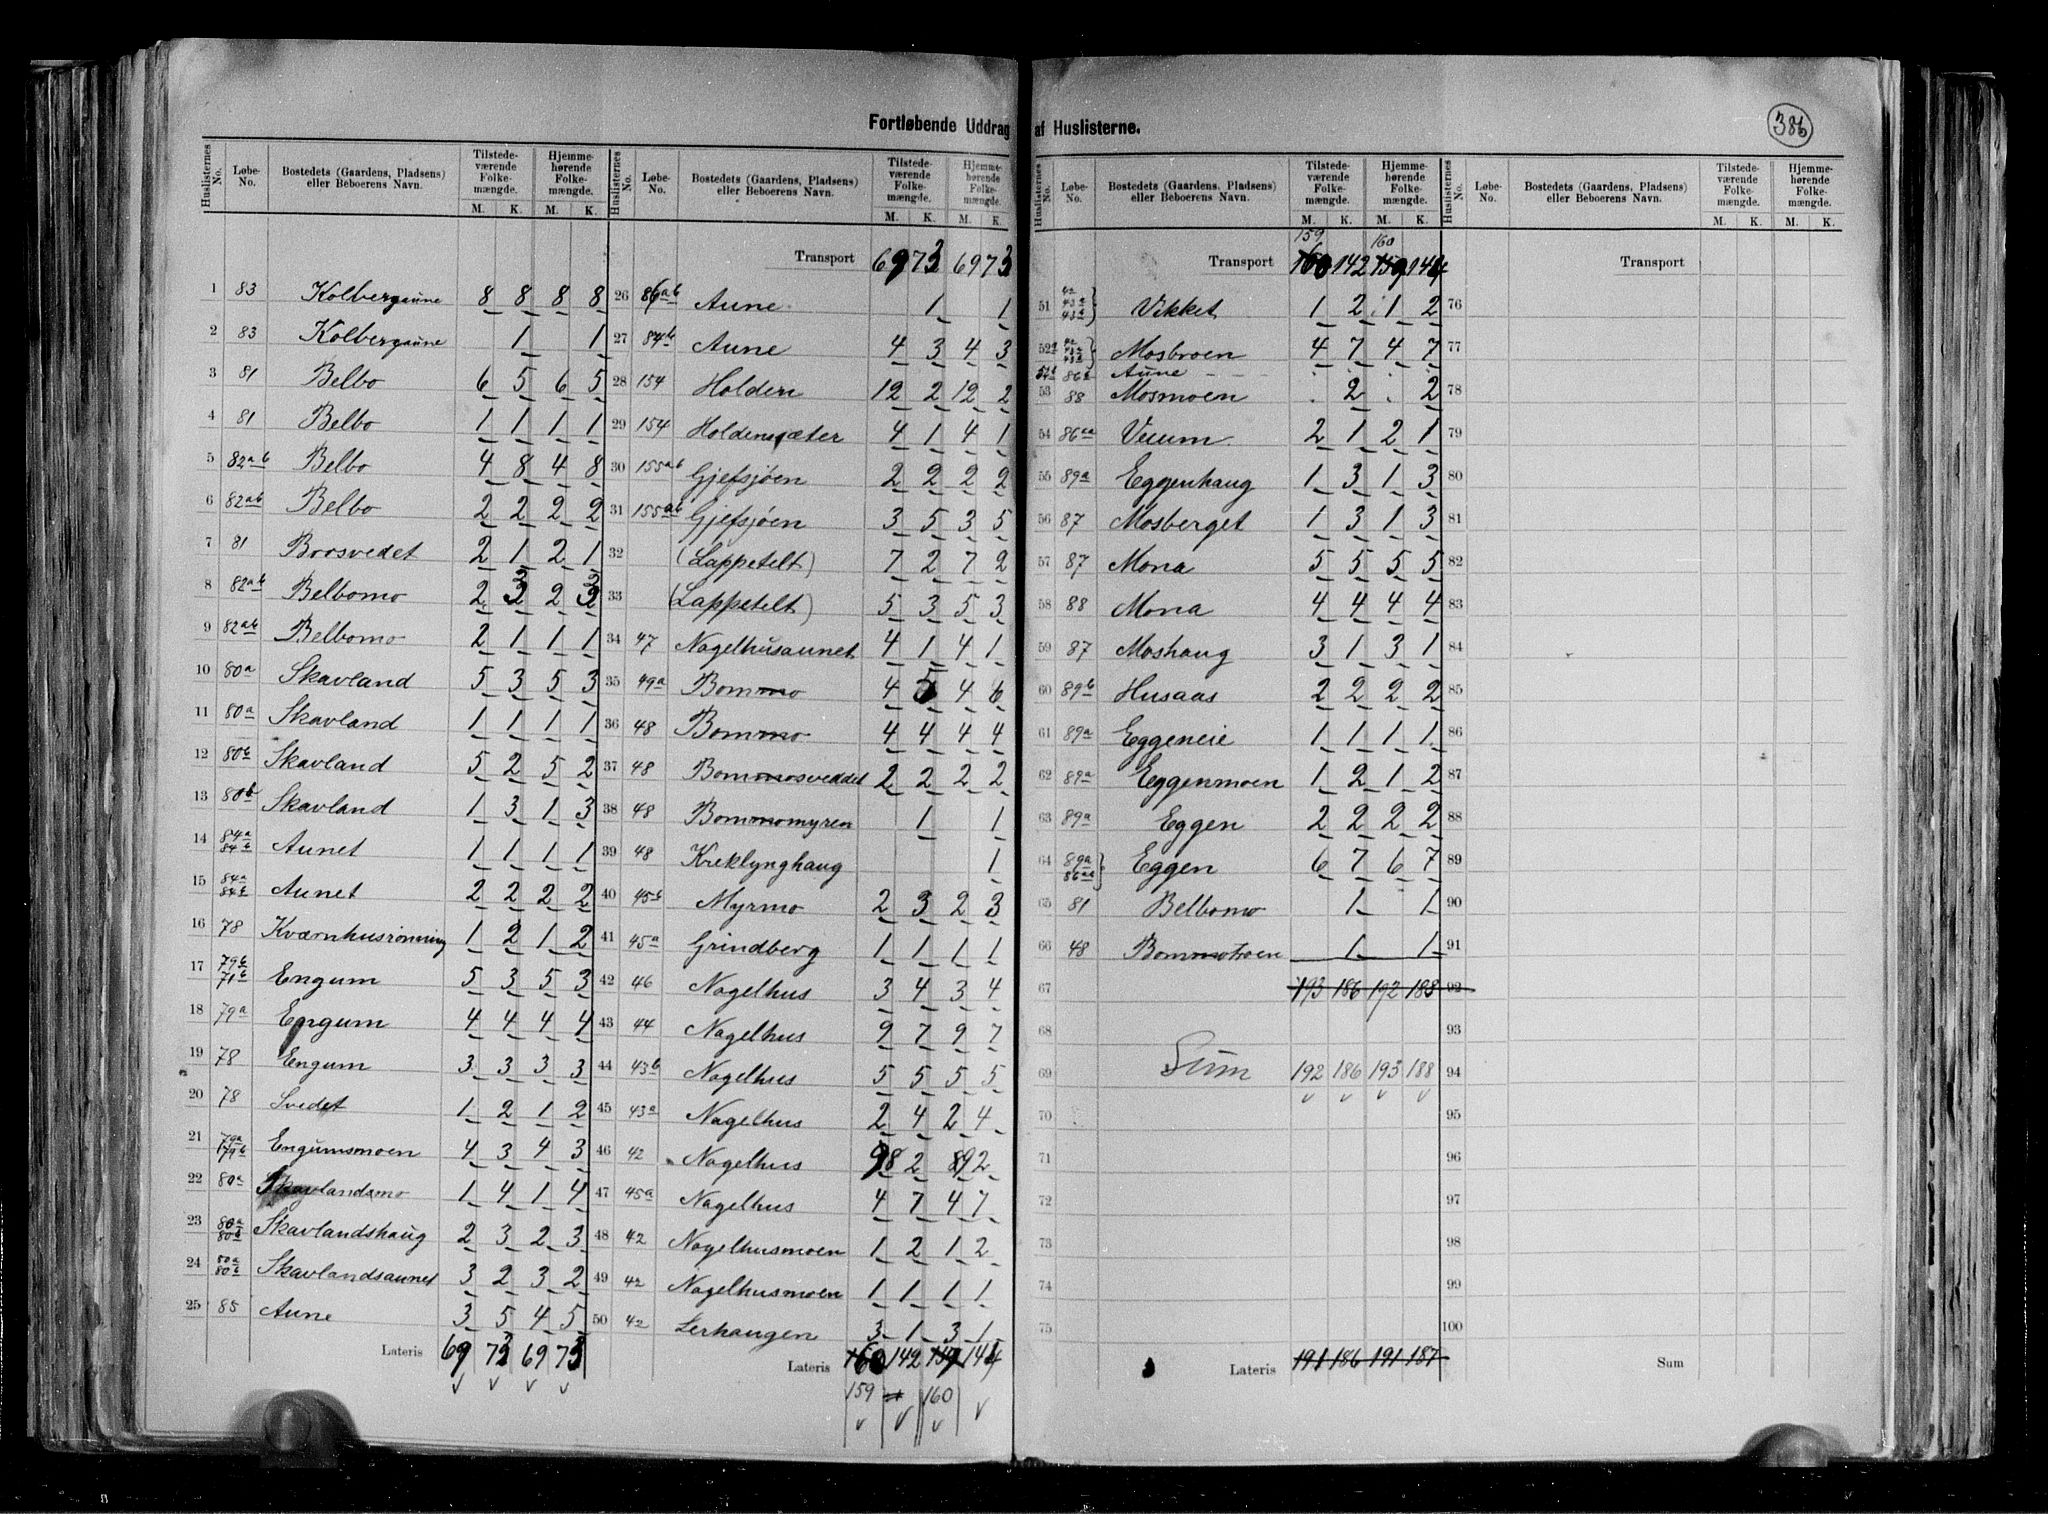 Fortløbende Uddrag af Huslisterne.
386
Huslisternes No. Løbe-No. Bostedets (Gaardens, Pladsens) eller Beboerens Navn. Tilstedeværende Folkemængde. M. K. Hjemmehørende Folkemængde. M. K.
1 83 Kolbergaune 8 8 8 8
2 83 Kolbergaune 1 1
3 81 Belbo 6 5 6 5
4 81 Belbo 1 1 1 1
5 82ab Belbo 4 8 4 8
6 82ab Belbo 2 2 2 2
7 81 Borsvedet 2 1 2 1
8 82ab Belbomo 2 3 2 3
9 82ab Belbomo 2 1 1 1
10 80a Skavland 5 3 5 3
11 80a Skavland 1 1 1 1
12 80b Skavland 5 2 5 2
13 80b Skavland 1 3 1 3
14 84a 84b Aunet 1 1 1 1
15 84a 84b Aunet 2 2 2 2
16 78 Kværnhusrønning 1 2 1 2
17 79b 71b Engum 5 3 5 3
18 79a Engum 4 4 4 4
19 78 Engum 3 3 3 3
20 78 Svedet 1 2 1 2
21 79a 79b Engumsmoen 4 3 4 3
22 80a Skavlandsmo 1 4 1 4
23 80a 80b Skavlandshaug 2 3 2 3
24 80a 80b Skavlandsaunet 3 2 3 2
25 85 Aune 3 5 4 5
Lateris 69 73 69 73
Huslisternes No. Løbe-No. Bostedets (Gaardens, Pladsens) eller Beboerens Navn. Tilstedeværende Folkemængde. M. K. Hjemmehørende Folkemængde. M. K.
Transport 69 73 69 73
26 86ab Aune 1 1
27 84b Aune 4 3 4 3
28 154 Holden 12 2 12 2
29 154 Holdensæter 4 1 4 1
30 155ab Gjefsjøen 2 2 2 2
31 155ab Gjefsjøen 3 5 3 5
32 (Lappetelt) 7 2 7 2
33 (Lappetelt) 5 3 5 3
34 47 Nagelhusaunet 4 1 4 1
35 49a Bommo 4 5 4 6
36 48 Bommo 4 4 4 4
37 48 Bommosveddet 2 2 2 2
38 48 Bommomyren 1 1
39 48 Kreklynghaug 1
40 45b Myrmo 2 3 2 3
41 45a Grindberg 1 1 1 1
42 46 Nagelhus 3 4 3 4
43 44 Nagelhus 9 7 9 7
44 43b Nagelhus 5 5 5 5
45 43a Nagelhus 2 4 2 4
46 42 Nagelhus 98 2 89 2
47 45a Nagelhus 4 7 4 7
48 42 Nagelhusmoen 1 2 1 2
49 42 Nagelhusmoen 1 1 1 1
50 42 Lerhaugen 3 1 3 1
Lateris 160 142 159 144
159 160
Huslisternes No. Løbe-No. Bostedets (Gaardens, Pladsens) eller Beboerens Navn. Tilstedeværende Folkemængde. M. K. Hjemmehørende Folkemængde. M. K.
159 160
Transport 160 142 159 144
51 42 43a 43a Vikket 1 2 1 2
52a Mosbroen 4 7 4 7
52b 86b Aune
53 88 Mosmoen 2 2
54 86aa Veium 2 1 2 1
55 89a Eggenhaug 1 3 1 3
56 87 Mosberget 1 3 1 3
57 87 Mona 5 5 5 5
58 88 Mona 4 4 4 4
59 87 Moshaug 3 1 3 1
60 89b Husaas 2 2 2 2
61 89a Eggeneie 1 1 1 1
62 89a Eggenmoen 1 2 1 2
63 89a Eggen 2 2 2 2
64 89a 86ab Eggen 6 7 6 7
65 81 Belbomo 1 1
66 48 Bommotroen 1 1
67 193 186 192 188
68
69 Sum 192 186 193 188
70
71
72
73
74
75
Lateris 191 186 191 187
Huslisternes No. Løbe-No. Bostedets (Gaardens, Pladsens) eller Beboerens Navn. Tilstedeværende Folkemængde. M. K. Hjemmehørende Folkemængde. M. K.
Transport
76
77
78
79
80
81
82
83
84
85
86
87
88
89
90
91
92
93
94
95
96
97
98
99
100
Sum